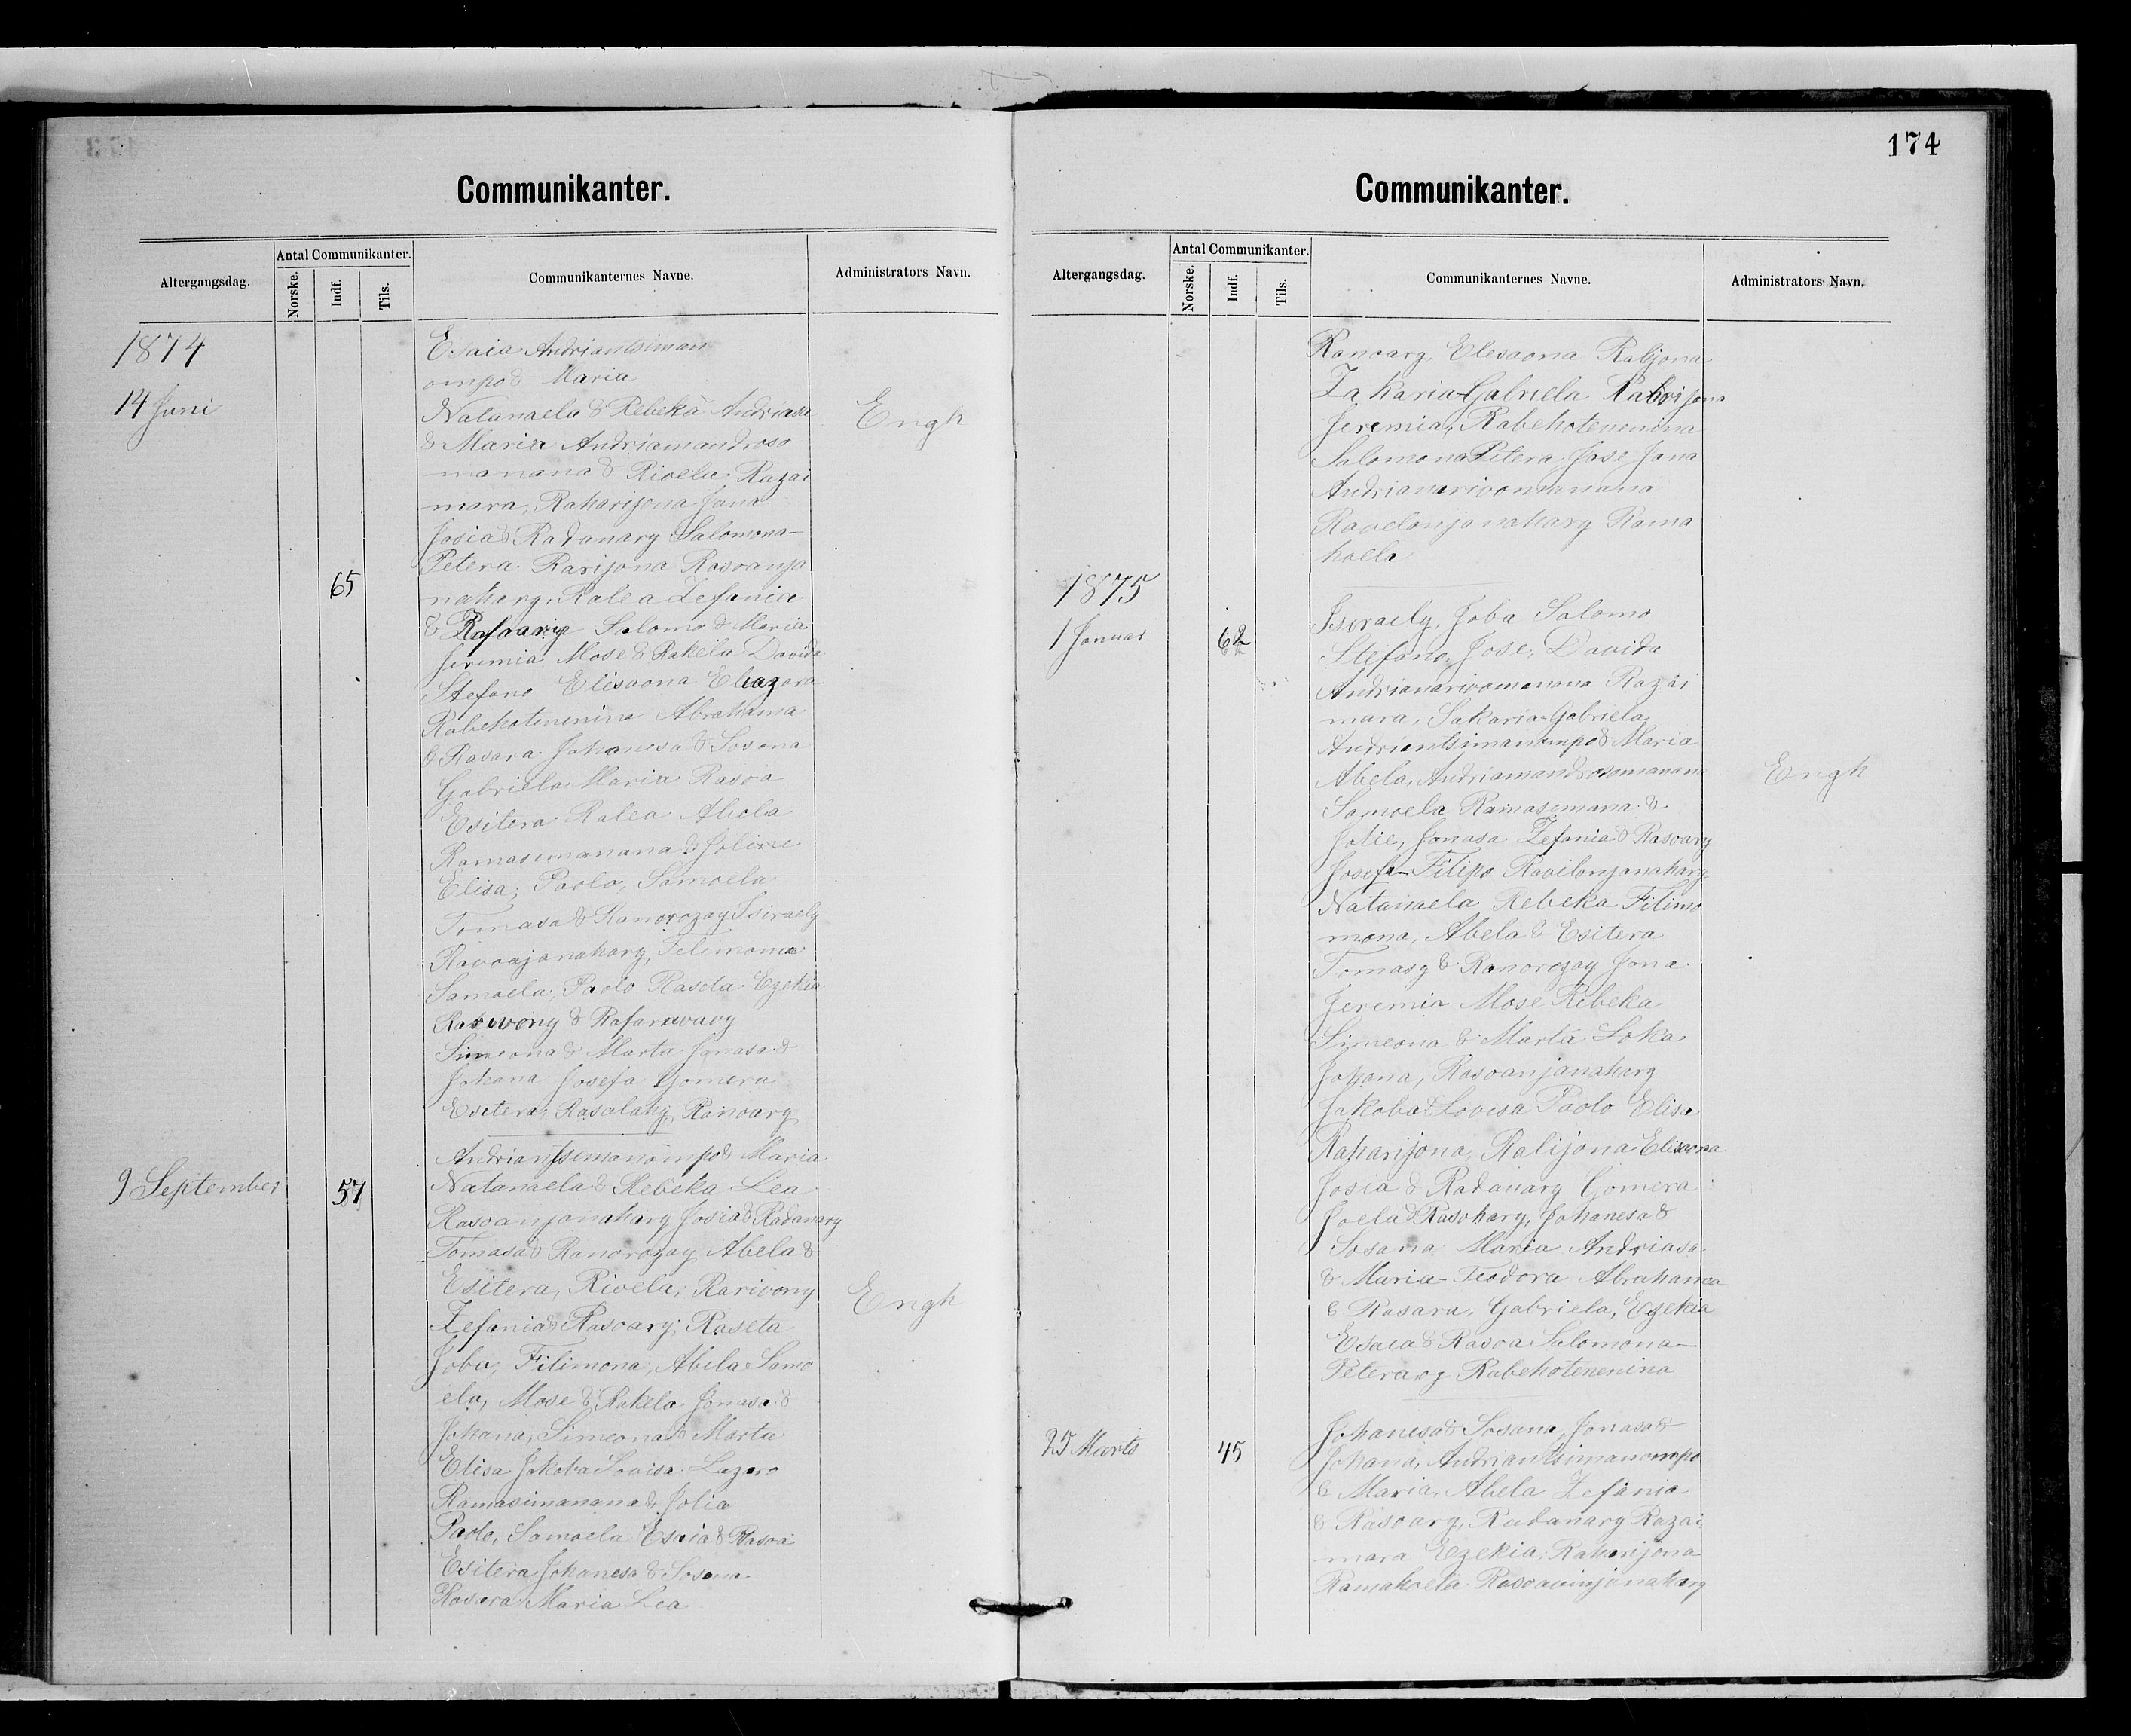 Communikanter.
Altergangsdag.
Antal Communikanter.
Norske.
Indf.
Tils.
Communikanternes Navne.
Administrators Navn.
1874
14 Juni
65
Engh
Esaia Andriantsiman
ompo & Maria
Natanaela & Rebeka Andriasa
& Maria Andriamandroso
manana & Rivela Razai
mara, Raharijona Jona
Josia & Radanary Salomona-
Petera Rarijona Rasoanja
nahary, Ralea Zefania
& Rasoary Salomo & Maria
Jeremia Mose & Rakela Davida
Stefano Elisaona Eleazara
Rabehotenenina Abrahama
& Rasara Johanesa & Sosana
Gabriela Maria Rasoa
Esitera Ralea Abela
Ramasimanana & Jolie
Elisa, Paolo, Samoela
Tomasa & Ranorozay Isiraely
Ravoajanahary, Filimona
Samoela, Paolo Raseta Ezekia
Rarivony & Rafaravavy
Simeona & Marta Jonasa &
Johana Josefa Gomera
Esitera, Rasalahy, Ranoary
9 September
57
Engh
Andriantsimanompo & Maria
Natanaela & Rebeka Lea
Rasoanjanahary Josia & Radanary
Tomasa & Ranorozay Abela &
Esitera, Rivela, Rarivony
Zefania & Rasoary, Raseta
Joba, Filimona, Abela Samo
ela, Mose & Rakela Jonasa &
Johana, Simeona & Marta
Elisa Jakoba Lovisa Lazaro
Ramasimanana & Jolia
Paolo, Samoela Esaia & Rasoa
Esitera Johanesa & Sosana
Rasara Maria Lea
174
Communikanter.
Altergangsdag.
Antal Communikanter.
Norske.
Indf.
Tils.
Communikanternes Navne.
Administrators Navn.
Ranoary Elesaona Ralijona
Zakaria-Gabriela Raharijona
Jeremia, Rabehotenenina
Salomona Petera Jose Jona
Andrianarivomanana
Ravelonjanahary Rama
hoela
1875
1 Januar
62
Engh
Isiraely, Joba Salomo
Stefano, Jose, Davida
Andrianarivomanana Razai
mara, Sakaria-Gabriela
Andriantsimanompo & Maria
Abela, Andriamandrosomanana
Samoela Ramasimana &
Jolie, Jonasa Zefania & Rasoary
Josefa-Filipo Ravelonjanahary
Natanaela Rebeka Filimo
mona, Abela & Esitera
Tomasy & Ranorozay Jona
Jeremia Mose Rebeka
Simeona & Marta Loka
Johana, Rasoanjanahary
Jakoba & Lovisa Paolo Elisa
Raharijona, Ralijona Elisaona
Josia & Radanary Gomera
Joela & Rasohary, Johanesa &
Sosana Maria Andriasa
& Maria-Teodora Abrahama
& Rasara, Gabriela, Ezekia
Esaia & Rasoa Salomona-
Petera og Rabehotenenina
25 Marts
45
Johanesa & Sosana, Jonasa &
Johana, Andriantsimanompo
& Maria, Abela Zefania
& Rasoary, Radanary Razai
mara Ezekia, Raharijona
Ramahoela Rasoanjanahary